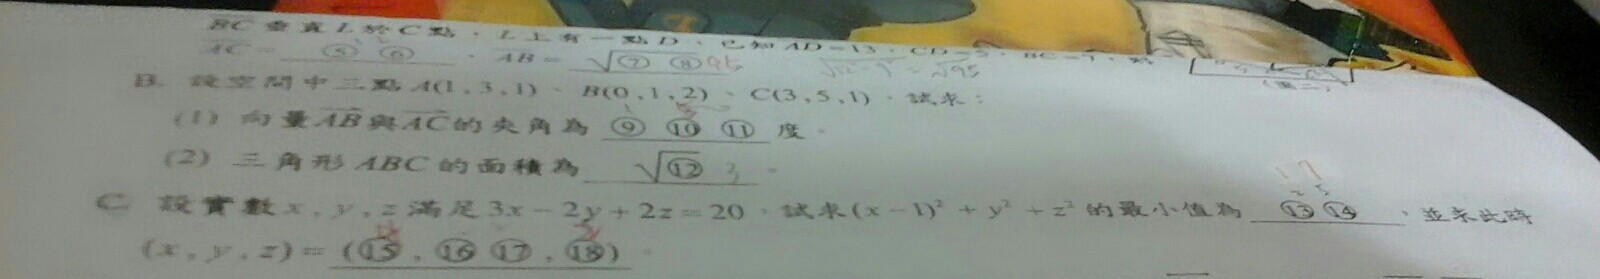 BC垂直L於C點，L上有一點D，已知AD=13，CD=5，BC=7，
AC= ⑤⑥ ，AB= √⑦⑧ 95
B. 設空間中三點A(1,3,1)、B(0,1,2)、C(3,5,1)，試求：
(1) 向量AB與AC的夾角為 ⑨⑩⑪ 度。
(2) 三角形ABC的面積為 √⑫ 3 。
C. 設實數x,y,z滿足3x－2y+2z=20，試求(x－1)²+y²+z²的最小值為 ⑬⑭ ，並求此時
(x,y,z)= (⑮,⑯⑰,⑱) 。